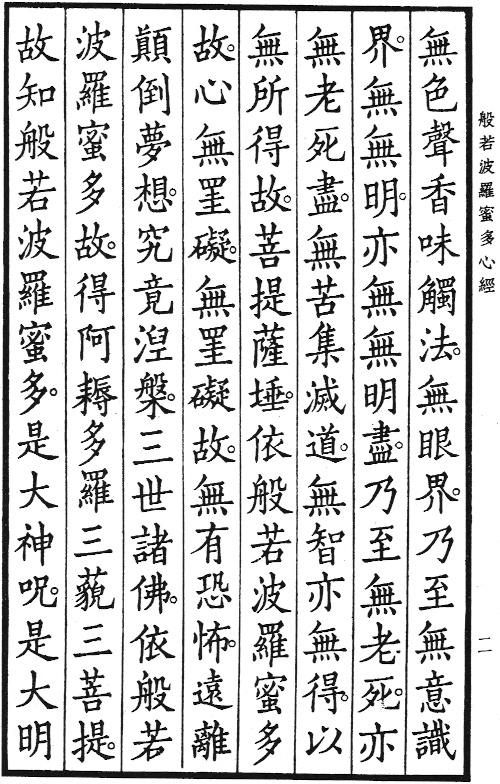 般若波羅蜜多心經
二
無色聲香味觸法。無眼界。乃至無意識
界。無無明。亦無無明盡。乃至無老死。亦
無老死盡。無苦集滅道。無智亦無得。以
無所得故。菩提薩埵。依般若波羅蜜多
故。心無罣礙。無罣礙故。無有恐怖。遠離
顛倒夢想。究竟涅槃。三世諸佛。依般若
波羅蜜多故。得阿耨多羅三藐三菩提。
故知般若波羅蜜多。是大神呪。是大明